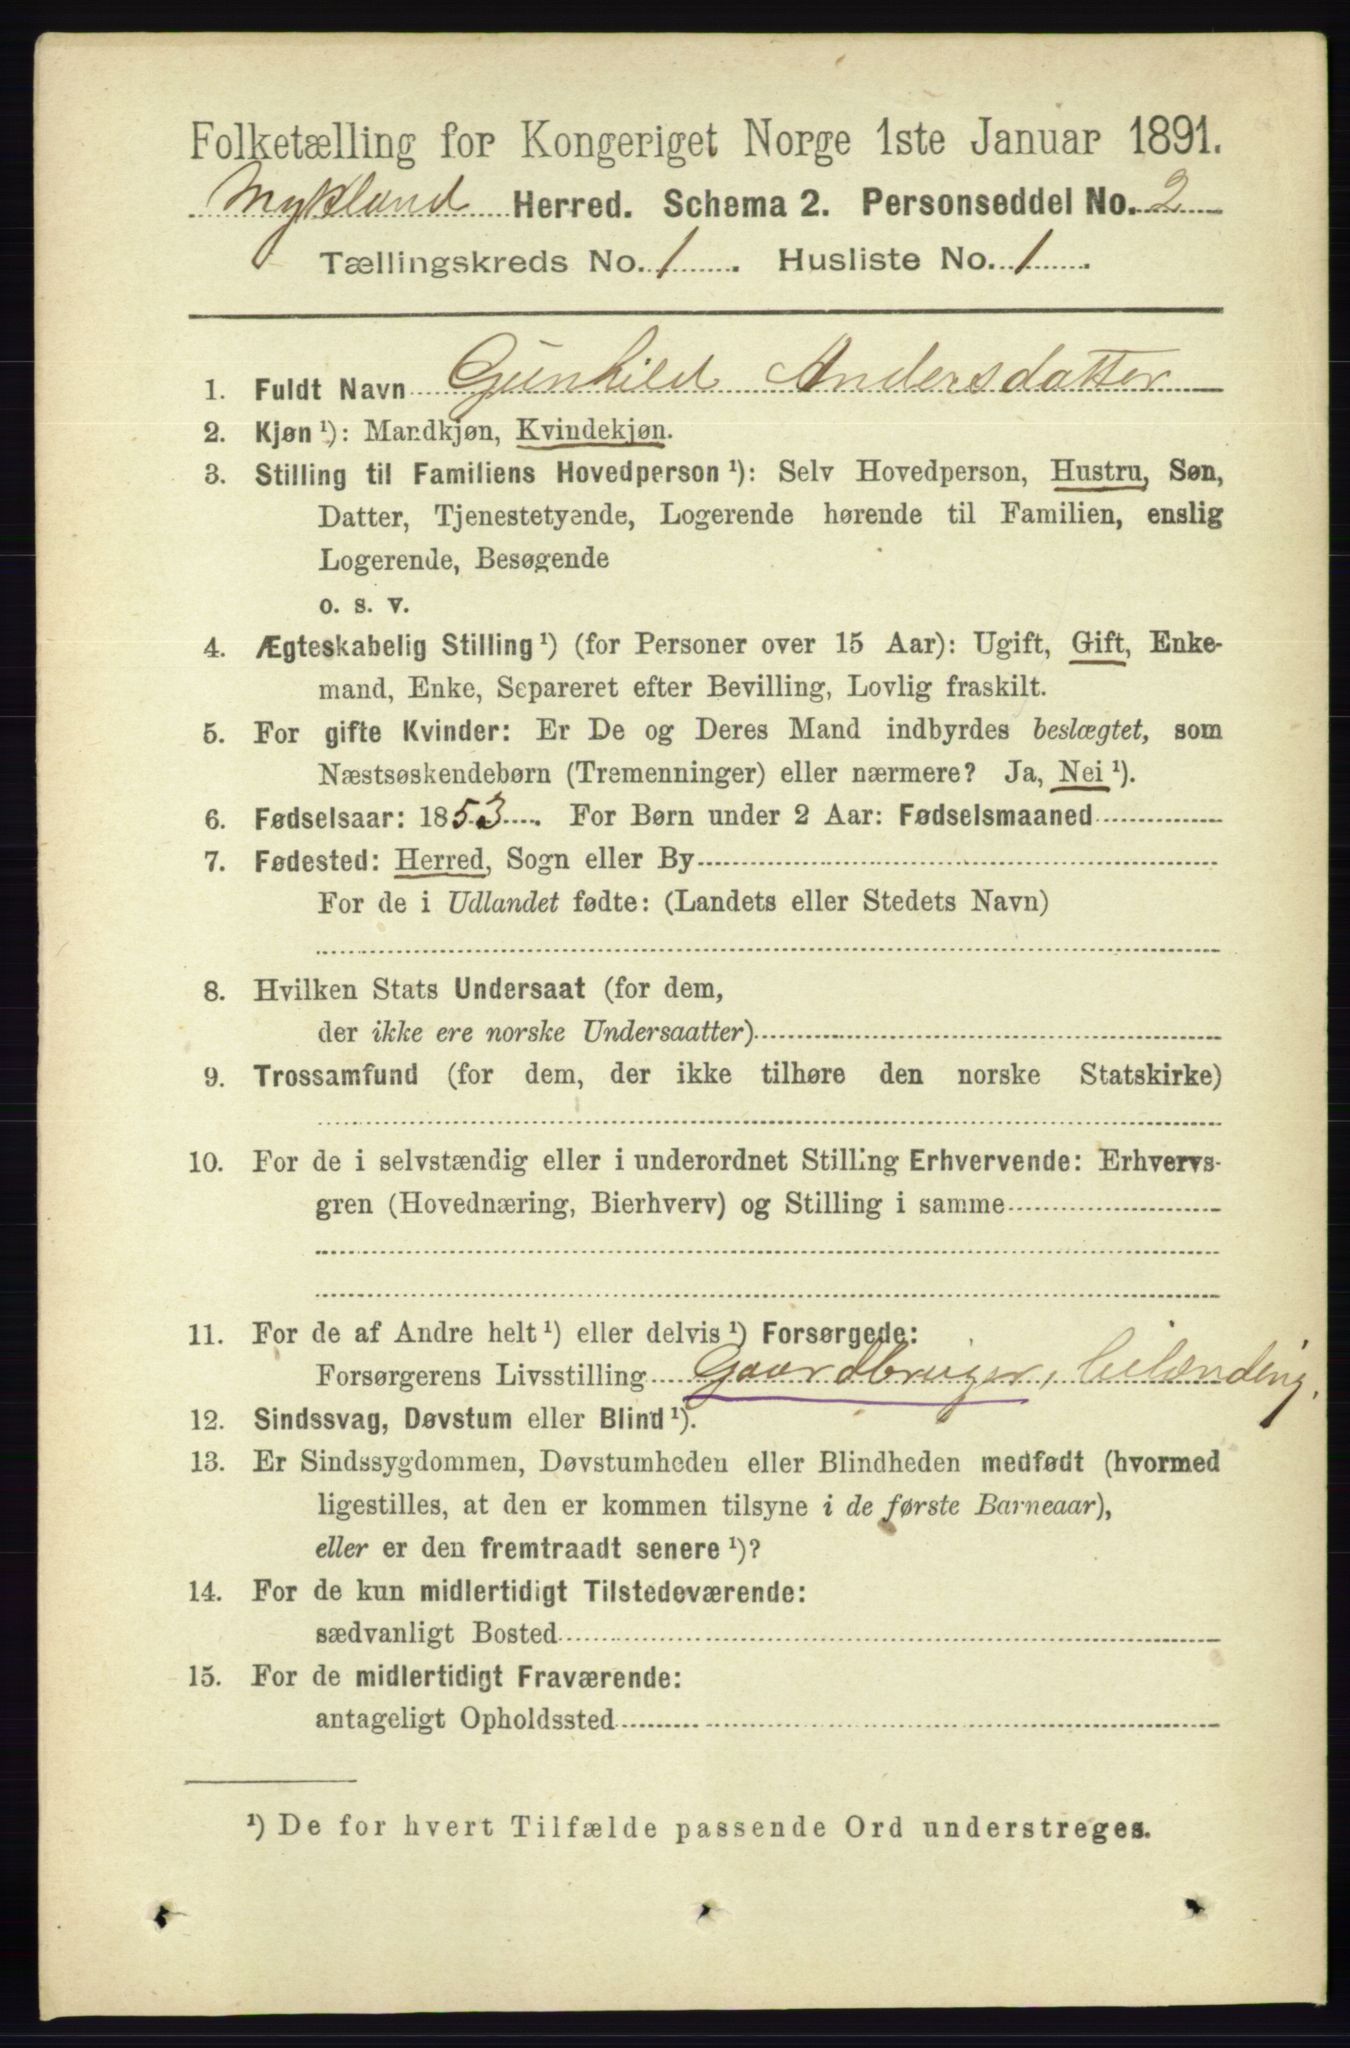 Folketælling for Kongeriget Norge 1ste Januar 1891.
Mykland Herred. Schema 2. Personseddel No. 2
Tællingskreds No. 1. Husliste No. 1.
1. Fuldt Navn Gunhild Andersdatter
2. Kjøn¹): Mandkjøn, Kvindekjøn.
3. Stilling til Familiens Hovedperson¹): Selv Hovedperson, Hustru, Søn,
Datter, Tjenestetyende, Logerende hørende til Familien, enslig
Logerende, Besøgende
o. s. v.
4. Ægteskabelig Stilling¹) (for Personer over 15 Aar): Ugift, Gift, Enke-
mand, Enke, Separeret efter Bevilling, Lovlig fraskilt.
5. For gifte Kvinder: Er De og Deres Mand indbyrdes beslægtet, som
Næstsøskendebørn (Tremenninger) eller nærmere? Ja, Nei¹).
6. Fødselsaar: 1853. For Børn under 2 Aar: Fødselsmaaned
7. Fødested: Herred, Sogn eller By
For de i Udlandet fødte: (Landets eller Stedets Navn)
8. Hvilken Stats Undersaat (for dem,
der ikke ere norske Undersaatter)
9. Trossamfund (for dem, der ikke tilhøre den norske Statskirke)
10. For de i selvstændig eller i underordnet Stilling Erhvervende: Erhvervs-
gren (Hovednæring, Bierhverv) og Stilling i samme
11. For de af Andre helt¹) eller delvis¹) Forsørgede:
Forsørgerens Livsstilling Gaardbruger,
12. Sindssvag, Døvstum eller Blind¹).
13. Er Sindssygdommen, Døvstumheden eller Blindheden medfødt (hvormed
ligestilles, at den er kommen tilsyne i de første Barneaar),
eller er den fremtraadt senere¹)?
14. For de kun midlertidigt Tilstedeværende:
sædvanligt Bosted
15. For de midlertidigt Fraværende:
antageligt Opholdssted
¹) De for hvert Tilfælde passende Ord understreges.